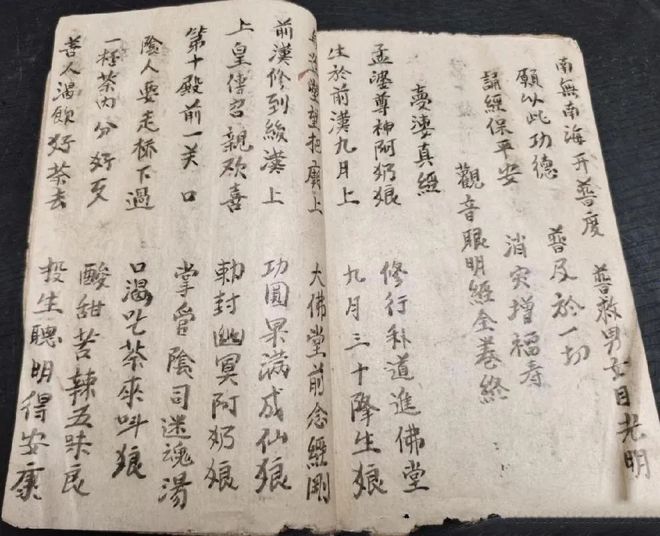 南無南海开普度 普救男女目光明
願以此功德 普及於一切
誦經保平安 消灾增福寿
觀音眼明經全卷終
夢婆真經
孟婆尊神阿奶娘 修行补道進佛堂
生於前漢九月上 九月三十降生娘
大佛堂前念經剛
前漢修到後漢上 功圓果滿成仙娘
上皇傳召親欢喜 勅封幽冥阿奶娘
第十殿前一关口 掌管陰司迷魂湯
陰人要走桥下過 口渴吃茶來叫娘
一杯茶内分好歹 酸甜苦辣五味良
善人渴飲好茶去 投生聰明得安康